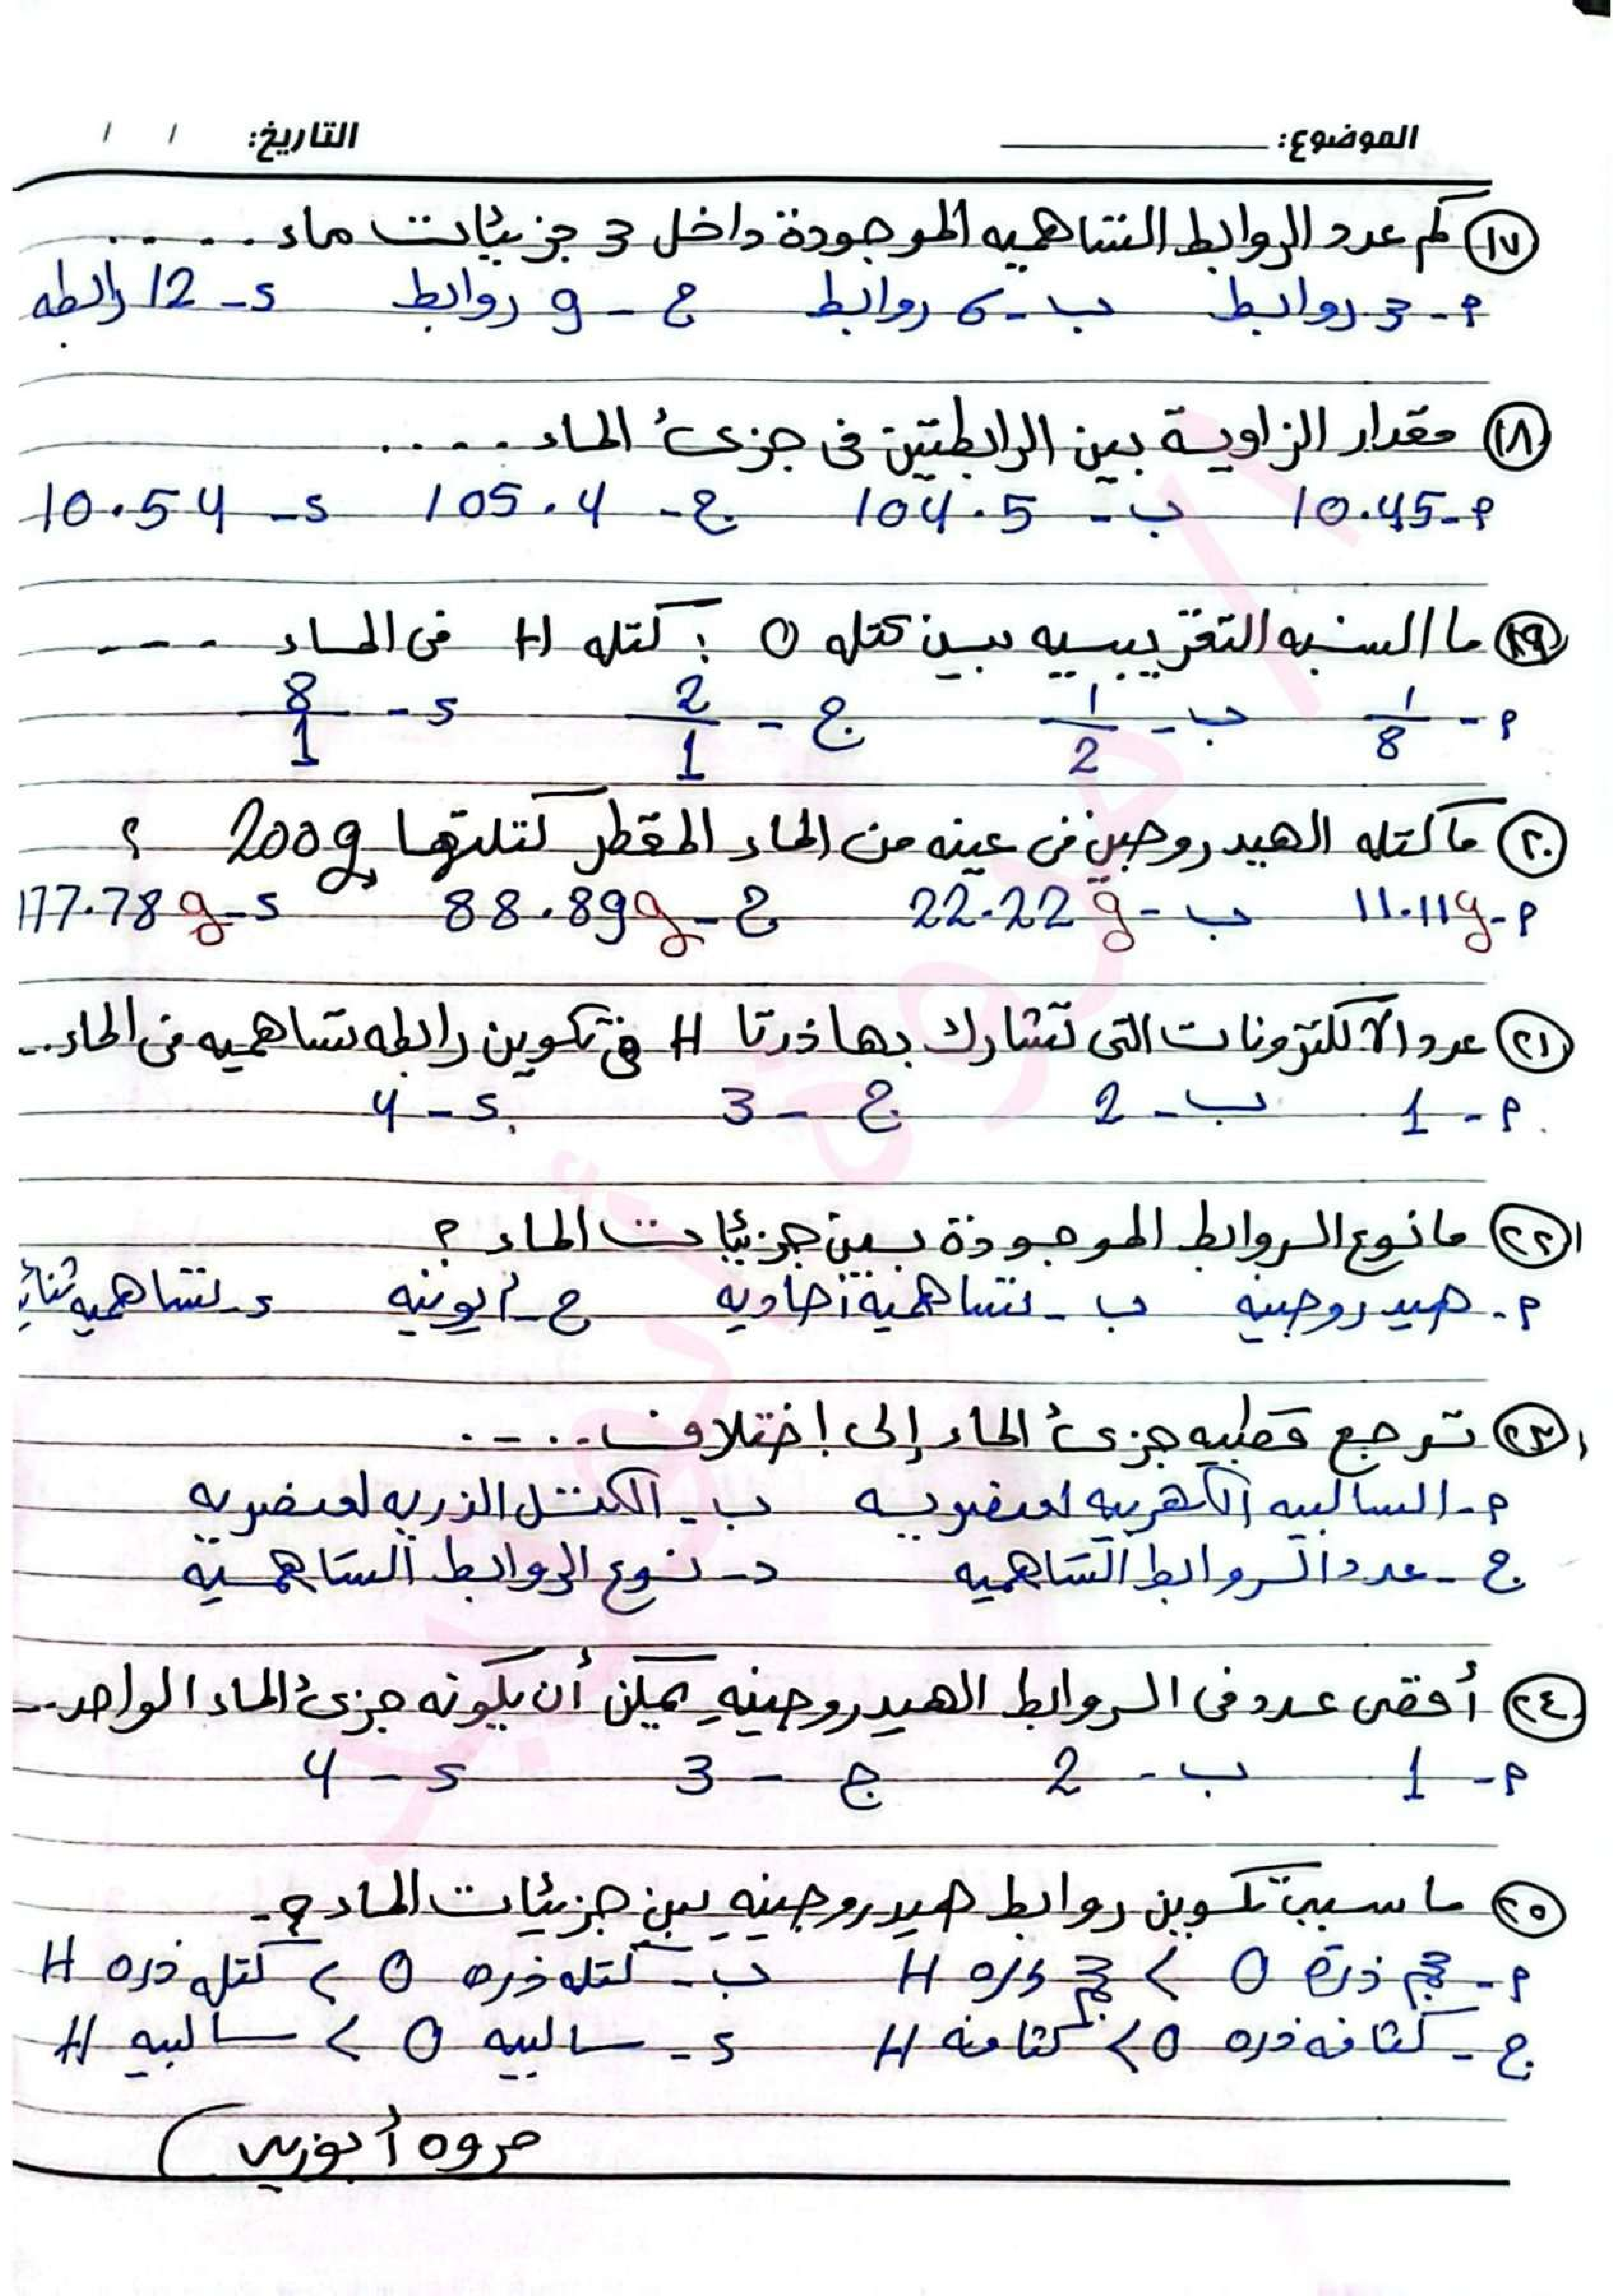 الموضوع: التاريخ: / /
١٧ كم عدد الروابط التساهميه الموجودة داخل 3 جزيئات ماء .....
أ- 3 روابط ب- 6 روابط ج- 9 روابط د- 12 رابطه
١٨ مقدار الزاوية بين الرابطتين فى جزىء الماء .....
أ- 10.45 ب- 104.5 ج- 105.4 د- 10.54
١٩ ما النسبه التقريبيه بين كتله O : كتله H فى الماء ----
أ- 1/8 ب- 1/2 ج- 2/1 د- 8/1
٢٠ ما كتله الهيدروجين فى عينه من الماء المقطر كتلتها 200g ؟
أ- 11.11g ب- 22.22g ج- 88.89g د- 177.78g
٢١ عدد الالكترونات التى تشارك بها ذرتا H فى تكوين رابطه تساهميه فى الماء..
أ- 1 ب- 2 ج- 3 د- 4
٢٢ ما نوع الروابط الموجودة بين جزيئات الماء ؟
أ- هيدروجينيه ب- تساهمية أحاديه ج- أيونيه د- تساهميه
٢٣ ترجع قطبيه جزىء الماء إلى إختلاف .....
أ- السالبيه الكهربيه لعنصريه ب- الكتل الذريه لعنصريه
ج- عدد الروابط التساهميه د- نوع الروابط التساهمية
٢٤ أقصى عدد فى الروابط الهيدروجينيه يمكن أن يكونه جزىء الماء الواحد..
أ- 1 ب- 2 ج- 3 د- 4
٢٥ ما سبب تكوين روابط هيدروجينيه بين جزيئات الماء ؟
أ- حجم ذرة O < حجم ذره H ب- كتله ذره O < كتله ذره H
ج- كثافه ذره O < كثافه H د- سالبيه O < سالبيه H
مروه أبوزيد